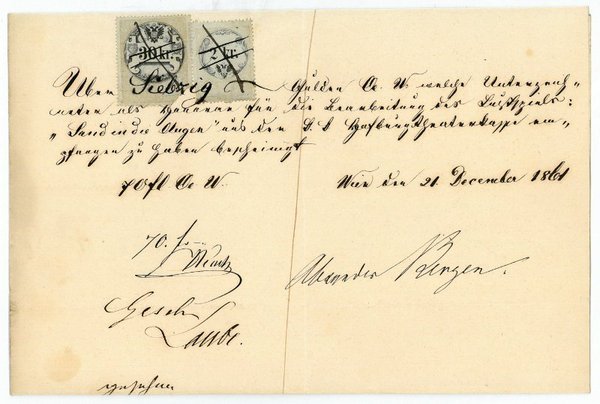 30 kr.
2 kr.
Über Siebzig Gulden Oe. W. welche Unterzeich-
neter als Honorar für die Bearbeitung des Lustspiels:
„Sand in die Augen" aus der k. k. Hofburgtheaterkasse em-
pfangen zu haben bescheinigt
70 fl. Oe. W.
Wien den 21. December 1861
70 f.
Alexander Bergen.
Gesehen
Laube.
gesehen